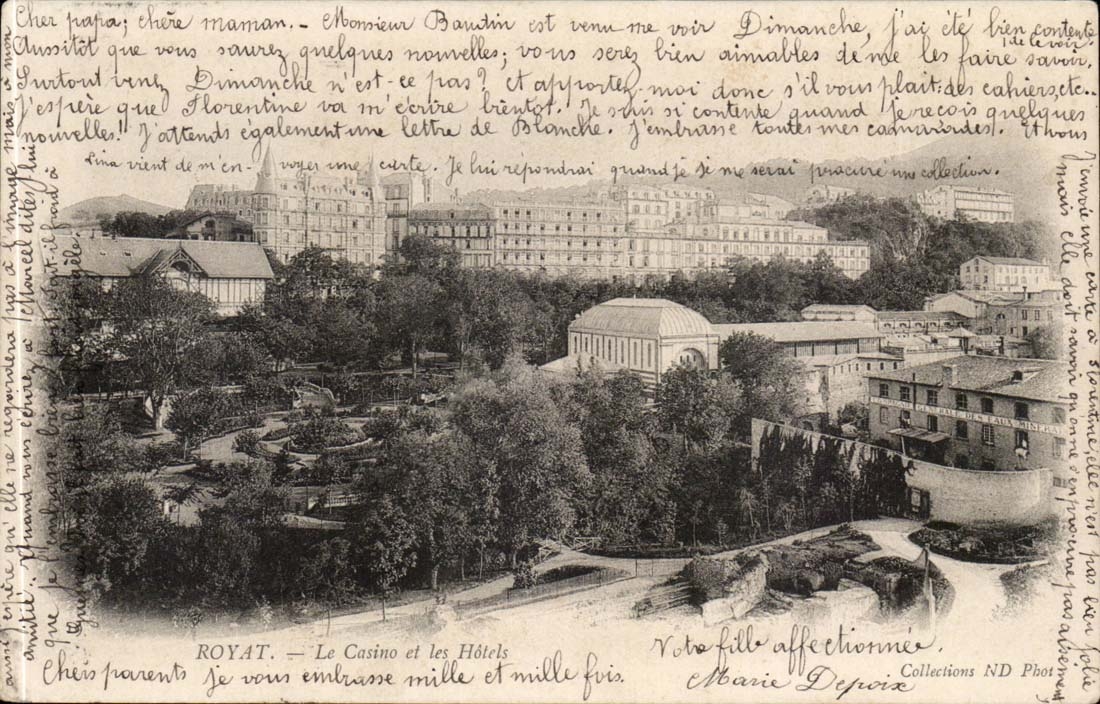 Cher papa; chère maman. - Monsieur Baudin est venu me voir Dimanche, j'ai été bien contente
de le voir.
Aussitôt que vous saurez quelques nouvelles; vous serez bien aimables de me les faire savoir.
Surtout venez Dimanche n'est-ce pas? et apportez-moi donc s'il vous plait: des cahiers, etc..
J'espère que Florentine va m'écrire bientôt. Je suis si contente quand je reçois quelques
nouvelles! J'attends également une lettre de Blanche. J'embrasse toutes mes camarades. Et vous
Lina vient de m'en-voyer une carte. Je lui répondrai quand je si me serai procuré une collection.
J'envoie une carte à Florentine, elle n'est pas bien jolie
mais elle doit savoir qu'on ne s'en procure pas aisément
aussi j'espère qu'elle ne regardera pas à l'image mais à mon
amitié. Quand vous écrirez à Marcel dites-lui
que je l'embrasse
GÉNÉRALE DES EAUX MINÉRALES
ROYAT. - Le Casino et les Hôtels
Collections ND Phot
Chers parents je vous embrasse mille et mille fois.
Votre fille affectionnée.
Marie Depoix